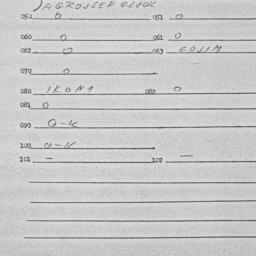 050 0 051 0
060 0 061 0
062 0 063
070 0
080 IKONA 082 0
081 0
090 0-K
100 0-K
101 - 102 -